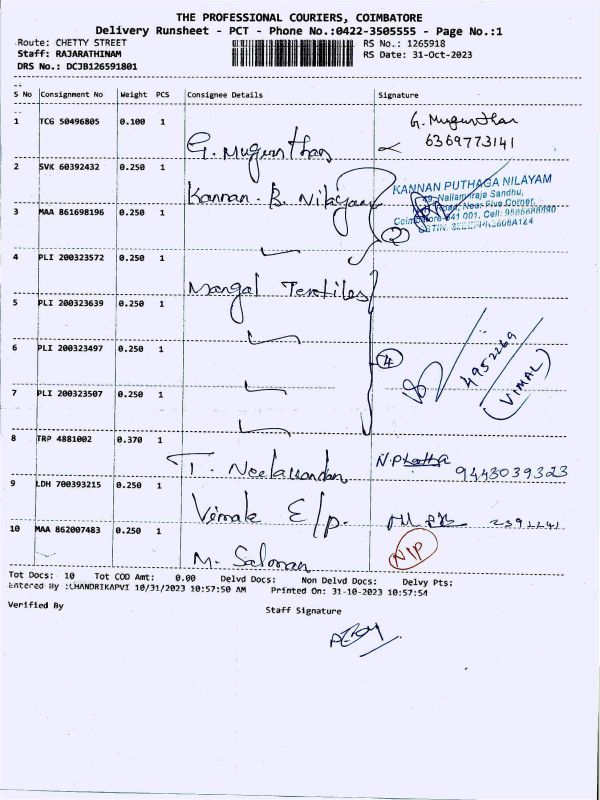 THE PROFESSIONAL COURIERS, COIMBATORE
Delivery Runsheet - PCT - Phone No.:0422-3505555 - Page No.:1
Route: CHETTY STREET RS No.: 1265918
Staff: RAJARATHINAM RS Date: 31-Oct-2023
DRS No.: DCJB126591801
S No Consignment No Weight PCS Consignee Details Signature
1 TCG 50496805 0.100 1 G. Mugunthan G. Mugunthan
6369773141
2 SVK 60392432 0.250 1 Kannan. B. Nilayam KANNAN PUTHAGA NILAYAM
Nallamraje Sandhu,
Road, Near Five Corner,
3 MAA 861698196 0.250 1 2
4 PLI 200323572 0.250 1 Mangal Textiles
5 PLI 200323639 0.250 1
6 PLI 200323497 0.250 1 4 4952269
(VIMAL)
7 PLI 200323507 0.250 1
8 TRP 4881002 0.370 1 T. Neelakandan 9443039323
9 LDH 700393215 0.250 1 Vimala E/p. 2391141
10 MAA 862007483 0.250 1 M. Salman NIP
Tot Docs: 10 Tot COD Amt: 0.00 Delvd Docs: Non Delvd Docs: Delvy Pts:
Entered By :CHANDRIKAPVI 10/31/2023 10:57:50 AM Printed On: 31-10-2023 10:57:54
Verified By Staff Signature